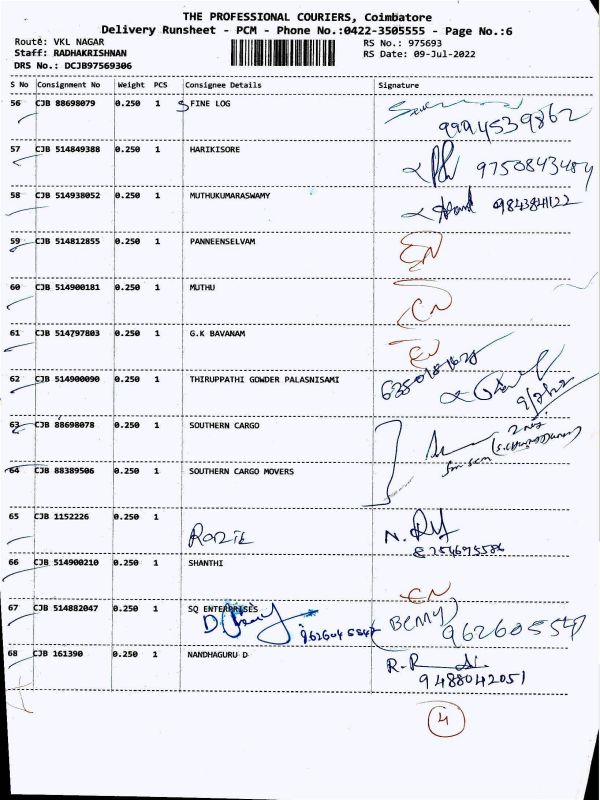 THE PROFESSIONAL COURIERS, Coimbatore
Delivery Runsheet - PCM - Phone No.:0422-3505555 - Page No.:6
Route: VKL NAGAR
RS No.: 975693
Staff: RADHAKRISHNAN
RS Date: 09-Jul-2022
DRS No.: DCJB97569306
S No Consignment No Weight PCS Consignee Details Signature
56 CJB 88698079 0.250 1 S FINE LOG
9994539862
57 CJB 514849388 0.250 1 HARIKISORE
9750843484
58 CJB 514938052 0.250 1 MUTHUKUMARASWAMY
9843841122
59 CJB 514812855 0.250 1 PANNEENSELVAM
60 CJB 514900181 0.250 1 MUTHU
CN
61 CJB 514797803 0.250 1 G.K BAVANAM
62 CJB 514900090 0.250 1 THIRUPPATHI GOWDER PALASNISAMI
63 CJB 88698078 0.250 1 SOUTHERN CARGO
64 CJB 88389506 0.250 1 SOUTHERN CARGO MOVERS
65 CJB 1152226 0.250 1
N.
66 CJB 514900210 0.250 1 SHANTHI
CN
67 CJB 514882047 0.250 1 SQ ENTERPRISES
9626045547 (BENNY)
68 CJB 161390 0.250 1 NANDHAGURU D
R-R
9488042051
4